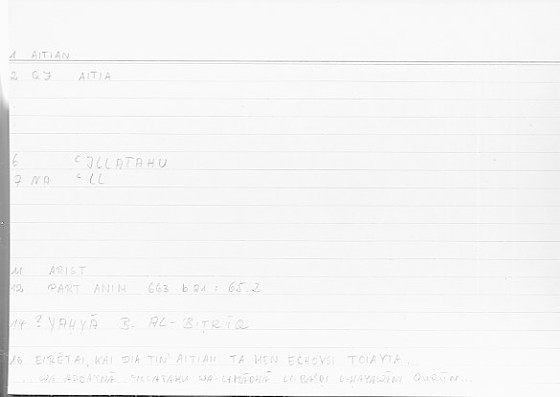 1 AITIAN
2 GJ AITIA
6 ʿILLATAHU
7 NA ʿLL
11 ARIST
12 PART ANIM 663 b21 : 65.2
14 ? YAḤYĀ B. AL-BIṬRĪQ
16 EIRĒTAI, KAI DIA TIN' AITIAN TA MEN ECHOUSI TOIAYTA...
...WA ʿILLATAHU WA-LIMĀDHĀ LI-BAʿḌI L-ḤAYAWĀNI QURŪN...